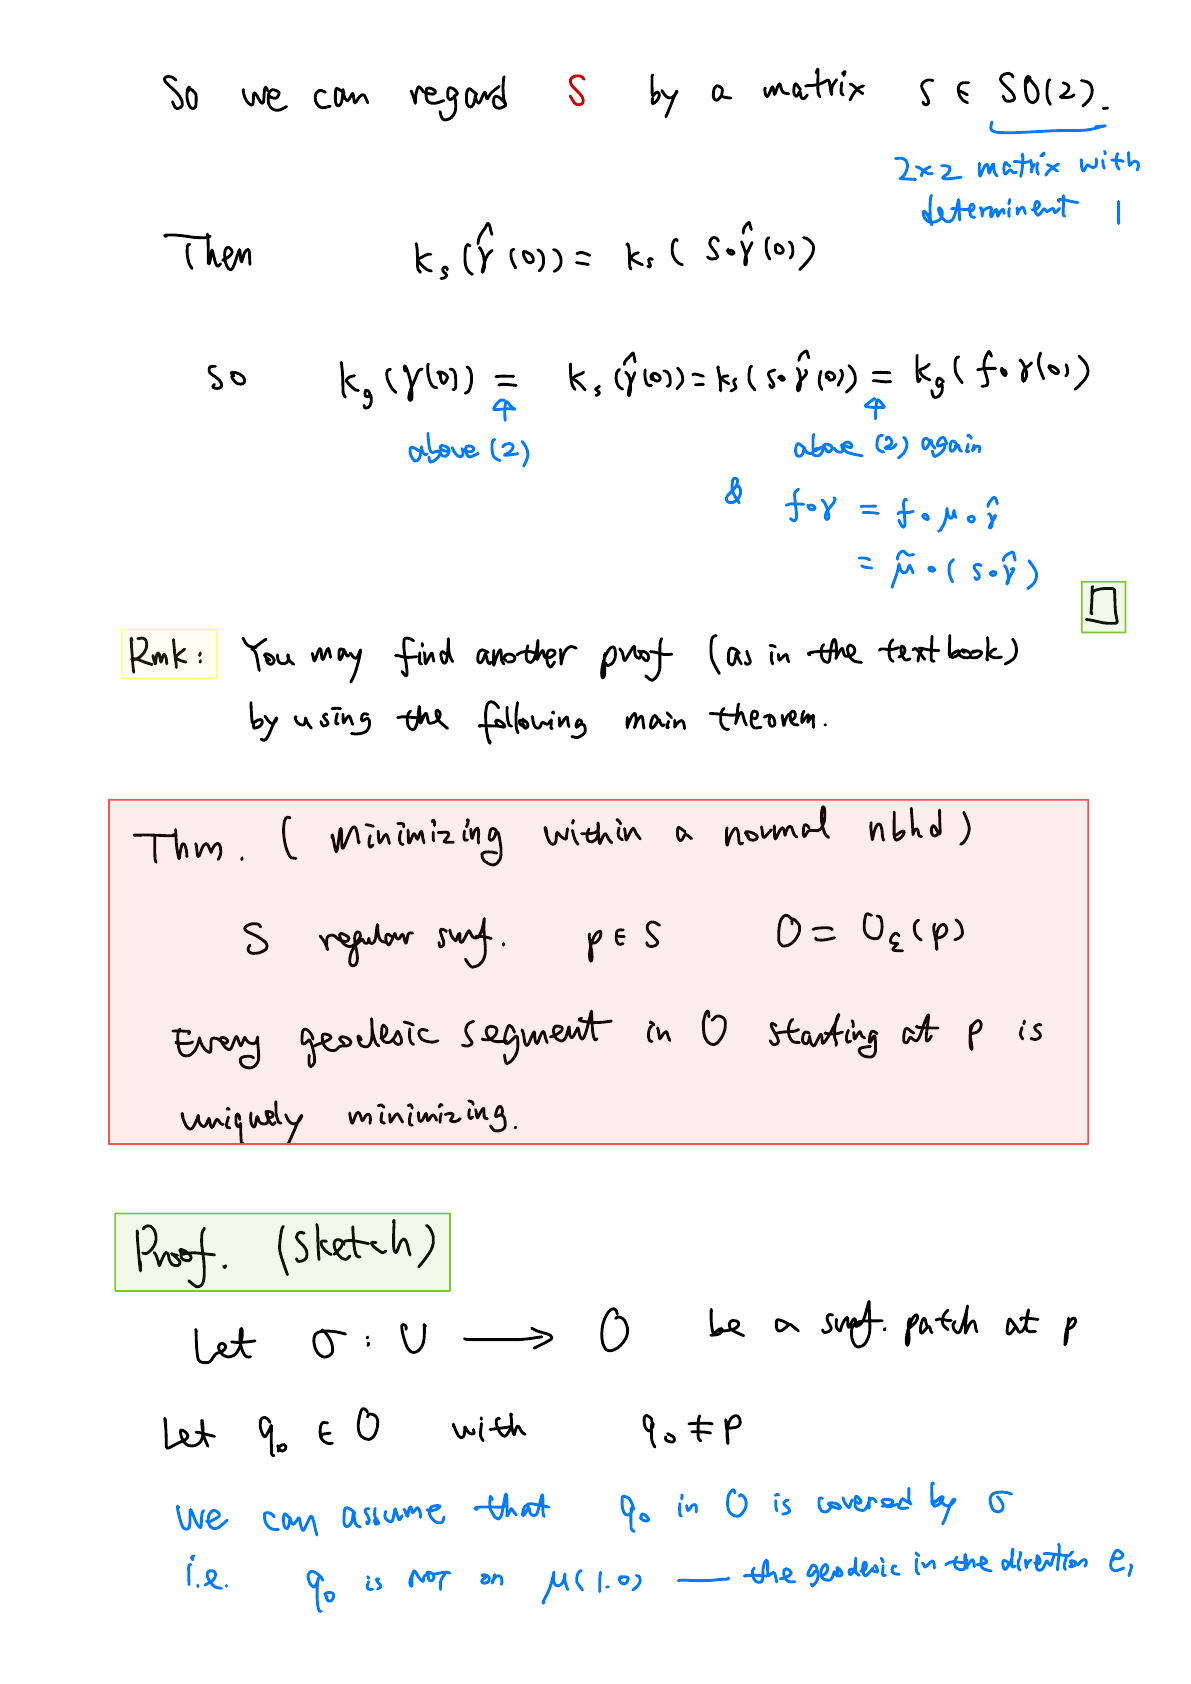 So we can regard S by a matrix S ∈ SO(2).
2×2 matrix with
determinent 1
Then k_s(γ̂(0)) = k_s(S∘γ̂(0))
so k_g(γ(0)) = k_s(γ̂(0)) = k_s(S∘γ̂(0)) = k_g(f∘γ(0))
above (2)
above (2) again
& f∘γ = f∘μ∘γ̂
= μ̃∘(S∘γ̂)
□
Rmk: You may find another proof (as in the textbook)
by using the following main theorem.
Thm. (Minimizing within a normal nbhd)
S regular surf. p ∈ S O = O_ε(p)
Every geodesic segment in O starting at p is
uniquely minimizing.
Proof. (Sketch)
Let σ : U ⟶ O be a surf. patch at p
Let q₀ ∈ O with q₀ ≠ p
we can assume that q₀ in O is covered by σ
i.e. q₀ is NOT on μ(1.0) — the geodesic in the direction e₁